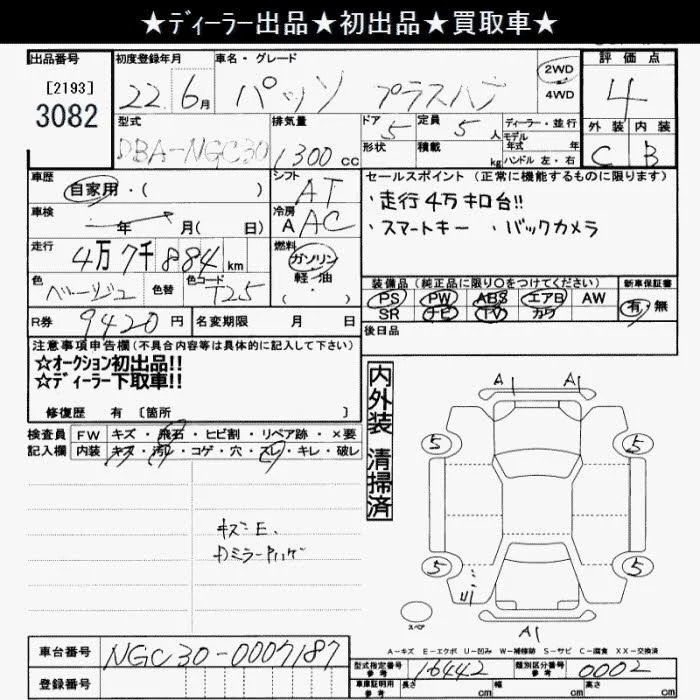 ★ディーラー出品★初出品★買取車★
出品番号 初度登録年月 車名・グレード 評価点
[2193]
3082
22年6月 パッソ プラスハナ 2WD 4WD 4
型式 排気量 ドア 定員 ディーラー・並行 外装 内装
DBA-NGC30 1300cc 5 5人 モデル年式 年 C B
形状 積載 kg ハンドル 左・右
車歴 シフト セールスポイント (正常に機能するものに限ります)
自家用・( ) AT ・走行4万キロ台!!
車検 年 月( 日) 冷房 AAC ・スマートキー ・バックカメラ
走行 4万7千884km 燃料 ガソリン 軽・油 ( ・ )
色 ベージュ 色替 色コード T25 装備品(純正品に限り○をつけてください) 新車保証書
PS PW ABS エアB AW 有・無
SR ナビ TV カワ
R券 9420円 名変期限 月 日 後日品
注意事項申告欄(不具合内容等は具体的に記入して下さい)
☆オークション初出品!!
☆ディーラー下取車!!
修復歴 有 [箇所 ]
内外装 清掃済
検査員 FW キズ・飛石・ヒビ割・リペア跡・×要
記入欄 内装 キズ・汚レ・コゲ・穴・スレ・キレ・破レ
A1 A1
5 5
キズ E、
Dミラー
5 5
スペア
A1
A-キズ E-エクボ U-凹み W-補修跡 S-サビ C-腐食 XX-交換済
車台番号 NGC30-0007187
型式指定番号 参考 16442 類別区分番号 参考 0002
登録番号 車庫証明用 参考 長さ cm 幅 cm 高さ cm